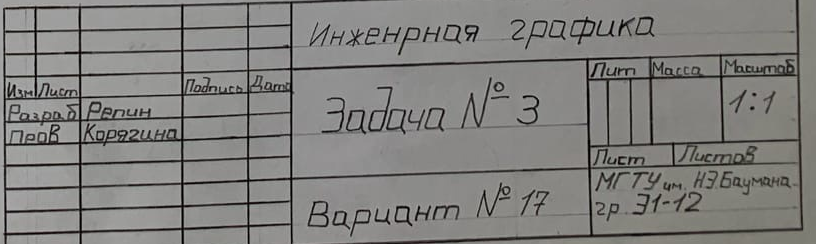 Инженрная графика
Лит Масса Масштаб
Изм Лист Подпись Дата
Разраб Репин
Задача № 3
1:1
Пров Корягина
Лист Листов
Вариант № 17
МГТУ им. Н.Э.Баумана
гр. Э1-12